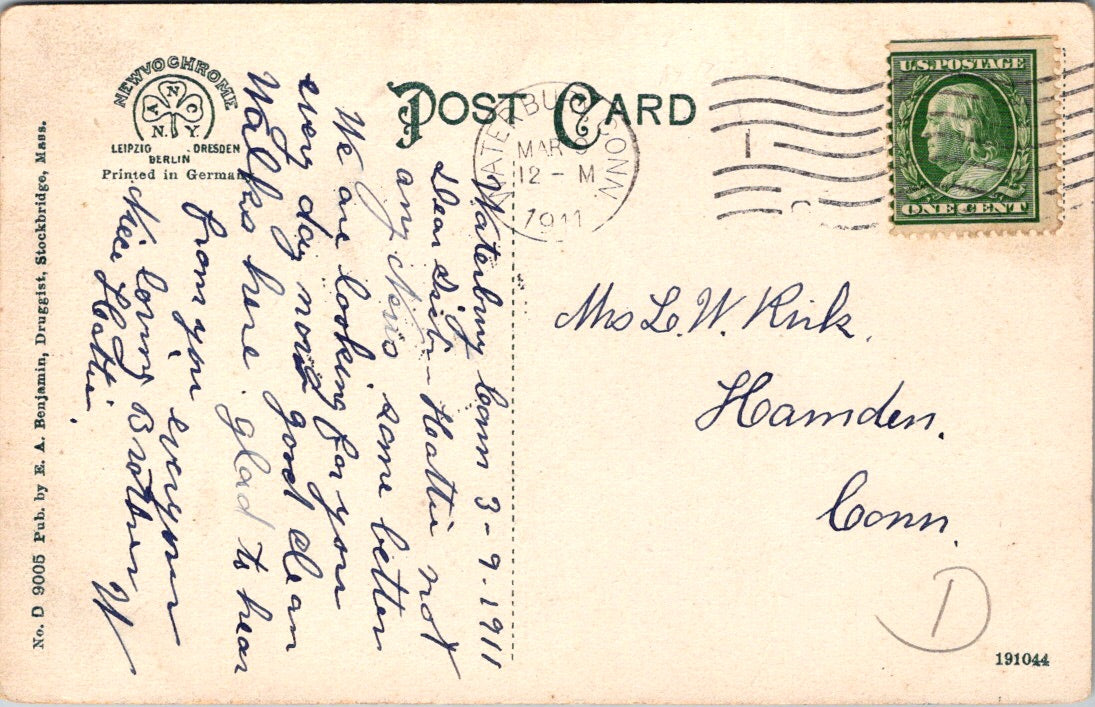 NEWVOCHROME
A N C
N. Y.
LEIPZIG . DRESDEN
BERLIN
Printed in German
POST CARD
WATERBURY, CONN.
MAR 9
12 - M
1911
U.S. POSTAGE
ONE CENT
Waterbury Conn 3-9-1911
Dear Sist- Hattie not
any News some better
We are looking for you
every day now good clean
Walks here glad to hear
from you
everyone
Niece loving Brother W
Hattie.
Mrs L. W. Kirk.
Hamden.
Conn.
D
191044
No. D 9005 Pub. by E. A. Benjamin, Druggist, Stockbridge, Mass.